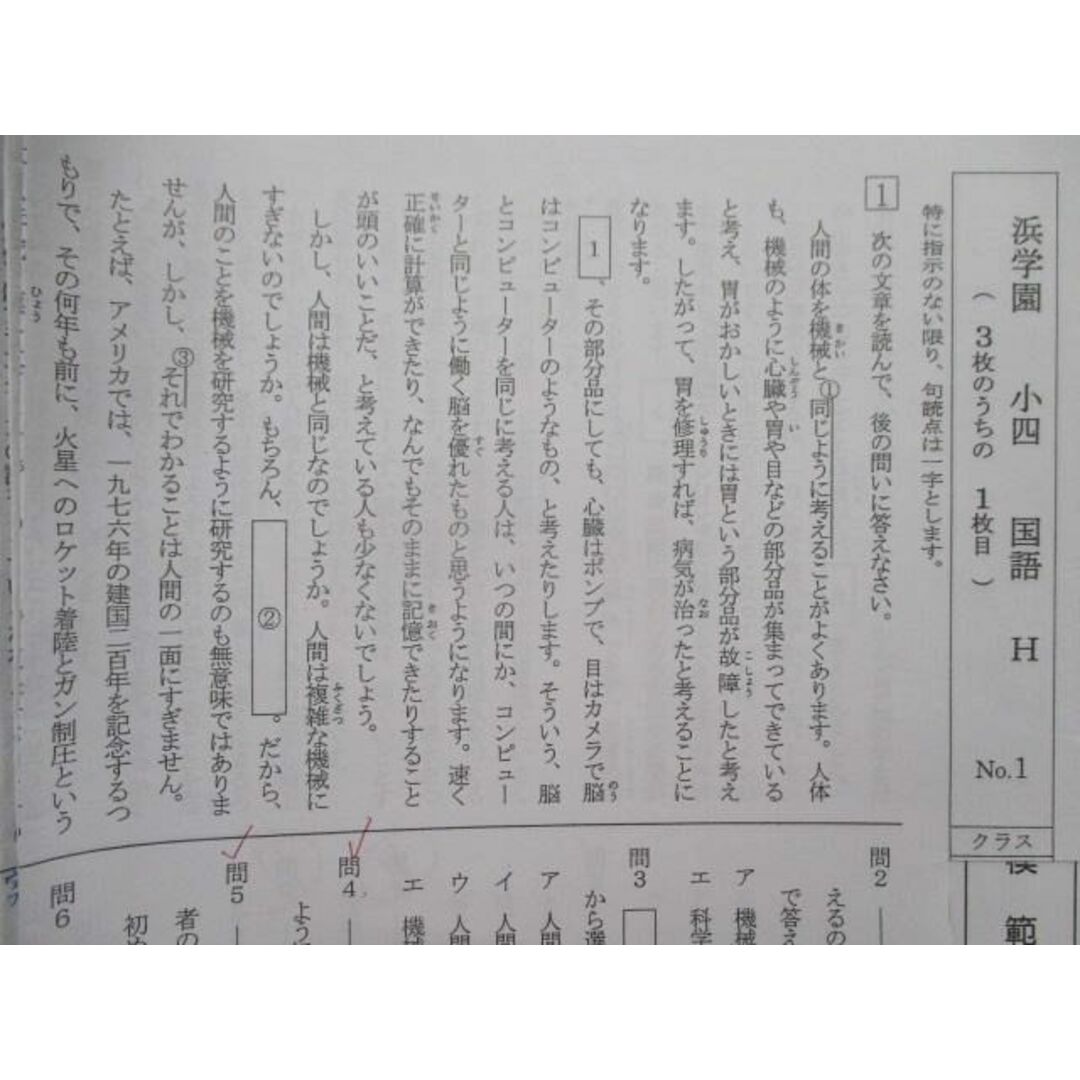 浜学園 小四 国語 H No.1
（３枚のうちの １枚目）
クラス
特に指示のない限り、句読点は一字とします。
1 次の文章を読んで、後の問いに答えなさい。
人間の体を機械と①同じように考えることがよくあります。人体
も、機械のように心臓や胃や目などの部分品が集まってできている
と考え、胃がおかしいときには胃という部分品が故障したと考え
ます。したがって、胃を修理すれば、病気が治ったと考えることに
なります。
1 、その部分品にしても、心臓はポンプで、目はカメラで脳
はコンピューターのようなもの、と考えたりします。そういう、脳
とコンピューターを同じに考える人は、いつの間にか、コンピュー
ターと同じように働く脳を優れたものと思うようになります。速く
正確に計算ができたり、なんでもそのままに記憶できたりすること
が頭のいいことだ、と考えている人も少なくないでしょう。
しかし、人間は機械と同じなのでしょうか。人間は複雑な機械に
すぎないのでしょうか。もちろん、 ② 。だから、
人間のことを機械を研究するように研究するのも無意味ではありま
せんが、しかし、③それでわかることは人間の一面にすぎません。
たとえば、アメリカでは、一九七六年の建国二百年を記念するつ
もりで、その何年も前に、火星へのロケット着陸とガン制圧という
範
問2
えるの
で答え
ア 機械
エ 科学
問3
から選
ア 人間
イ 人間
ウ 人間
エ 機械
問4
よう
問5
者の
初め
問6